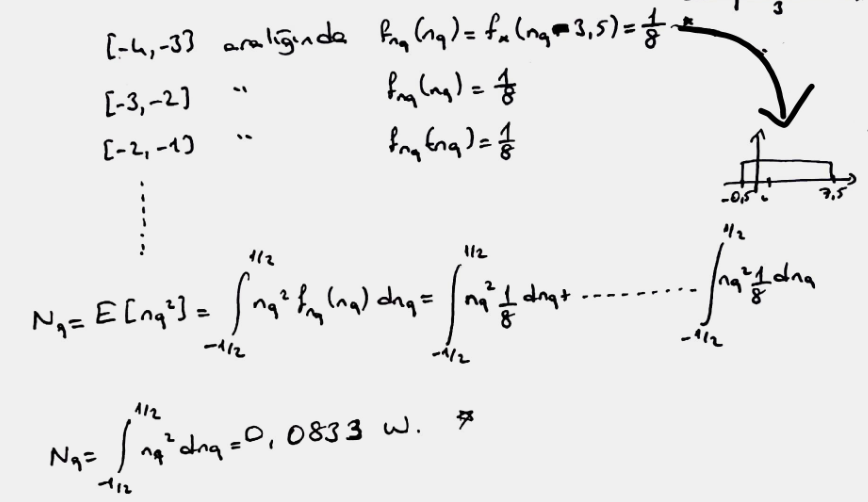 3
[-4,-3] aralığında f_nq(nq) = f_x(nq - 3,5) = 1/8 *
[-3,-2] " f_nq(nq) = 1/8
[-2,-1] " f_nq(nq) = 1/8
-0,5 7,5
Nq = E[nq²] = ∫_{-1/2}^{1/2} nq² f_nq(nq) dnq = ∫_{-1/2}^{1/2} nq² 1/8 dnq + ........... ∫_{-1/2}^{1/2} nq² 1/8 dnq
Nq = ∫_{-1/2}^{1/2} nq² dnq = 0,0833 W.